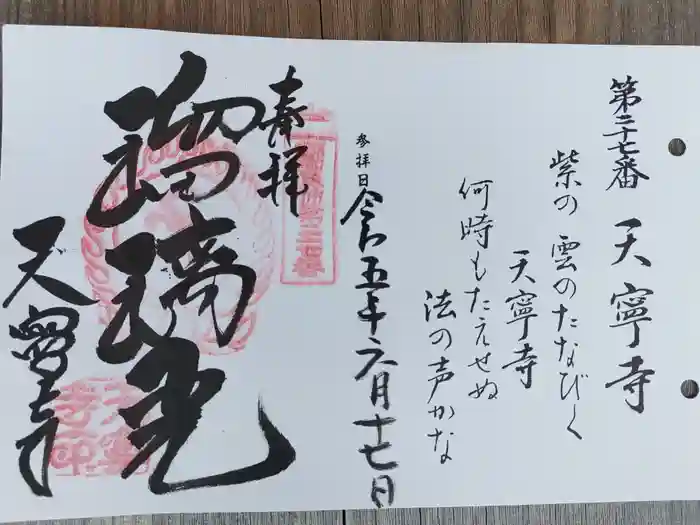 第二十七番 天寧寺
紫の雲のたなびく
天寧寺
何時もたえせぬ
法の声かな
参拝日 令和五年六月十七日
奉拝
瑠璃光
天寧寺